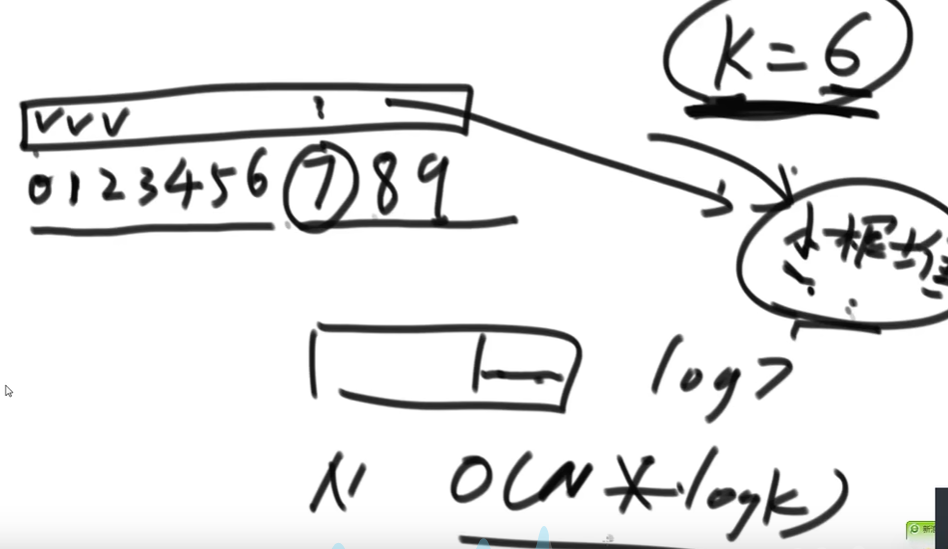 K = 6
0 1 2 3 4 5 6 7 8 9
小根堆
log7
N O(N * logk)